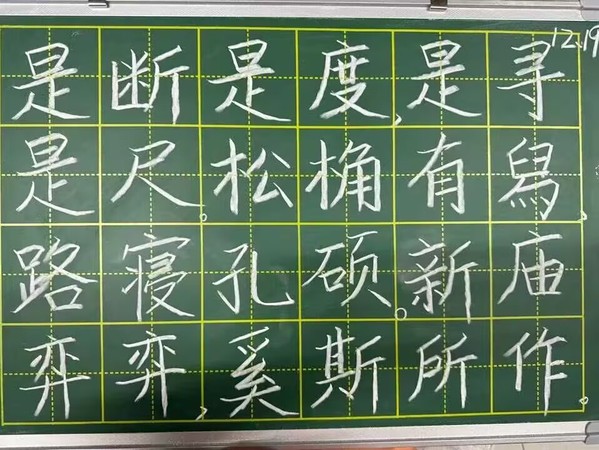 12.19
是断是度,是寻
是尺。松桷有舄,
路寝孔硕。新庙
弈弈,奚斯所作。